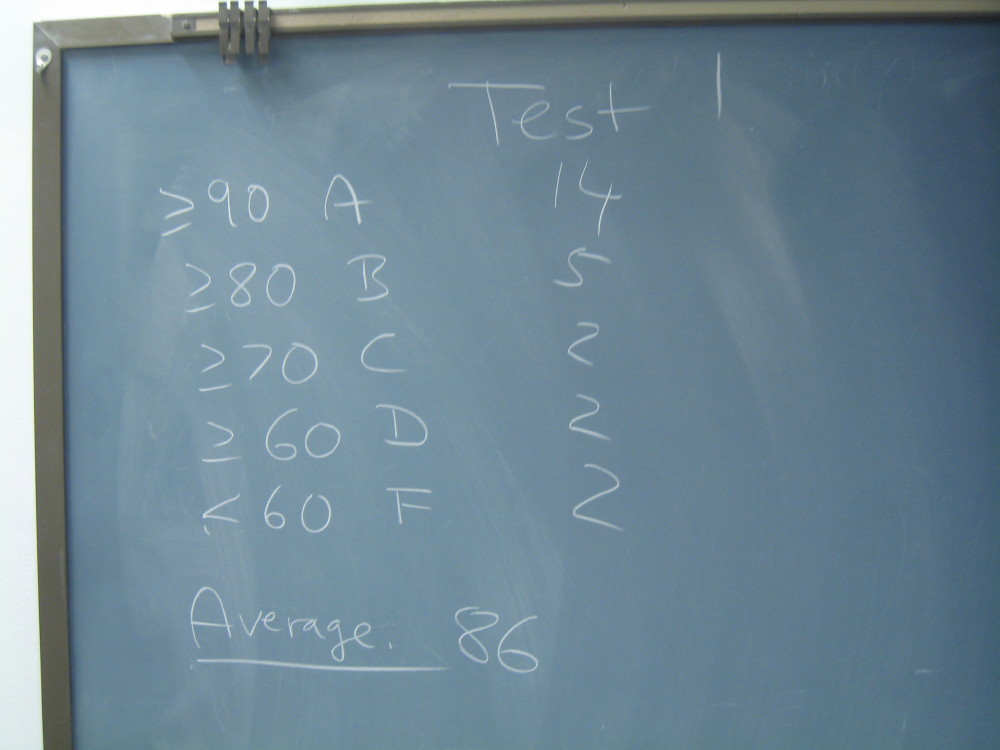 Test 1
≥90 A 14
≥80 B 5
≥70 C 2
≥ 60 D 2
< 60 F 2
Average. 86